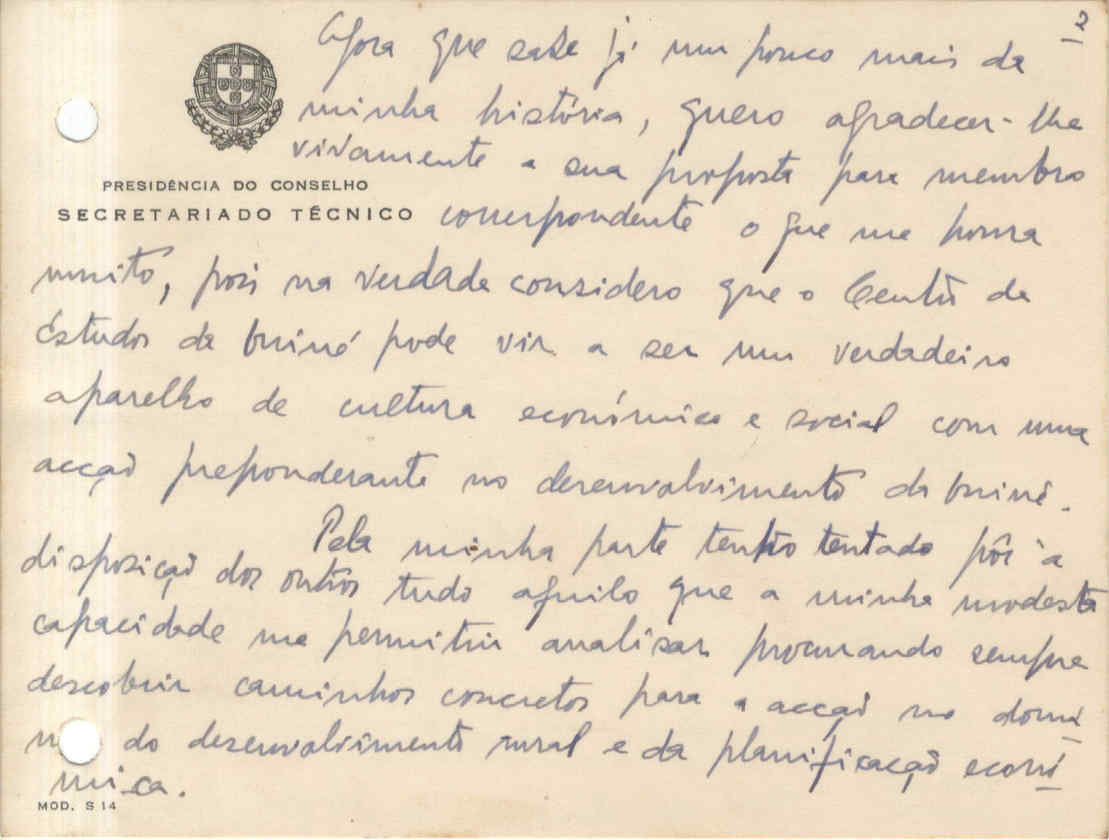 2
Agora que sabe já um pouco mais da
minha história, quero agradecer-lhe
vivamente a sua proposta para membro
PRESIDÊNCIA DO CONSELHO
SECRETARIADO TÉCNICO
correspondente o que me honra
muito, pois na verdade considero que o Centro de
Estudos da Guiné pode vir a ser um verdadeiro
aparelho de cultura económica e social com uma
acção preponderante no desenvolvimento da Guiné.
Pela minha parte tenho tentado pôr à
disposição dos outros tudo aquilo que a minha modesta
capacidade me permitiu analisar procurando sempre
descobrir caminhos concretos para a acção no domí
do desenvolvimento rural e da planificação econó
mica.
MOD. S 14